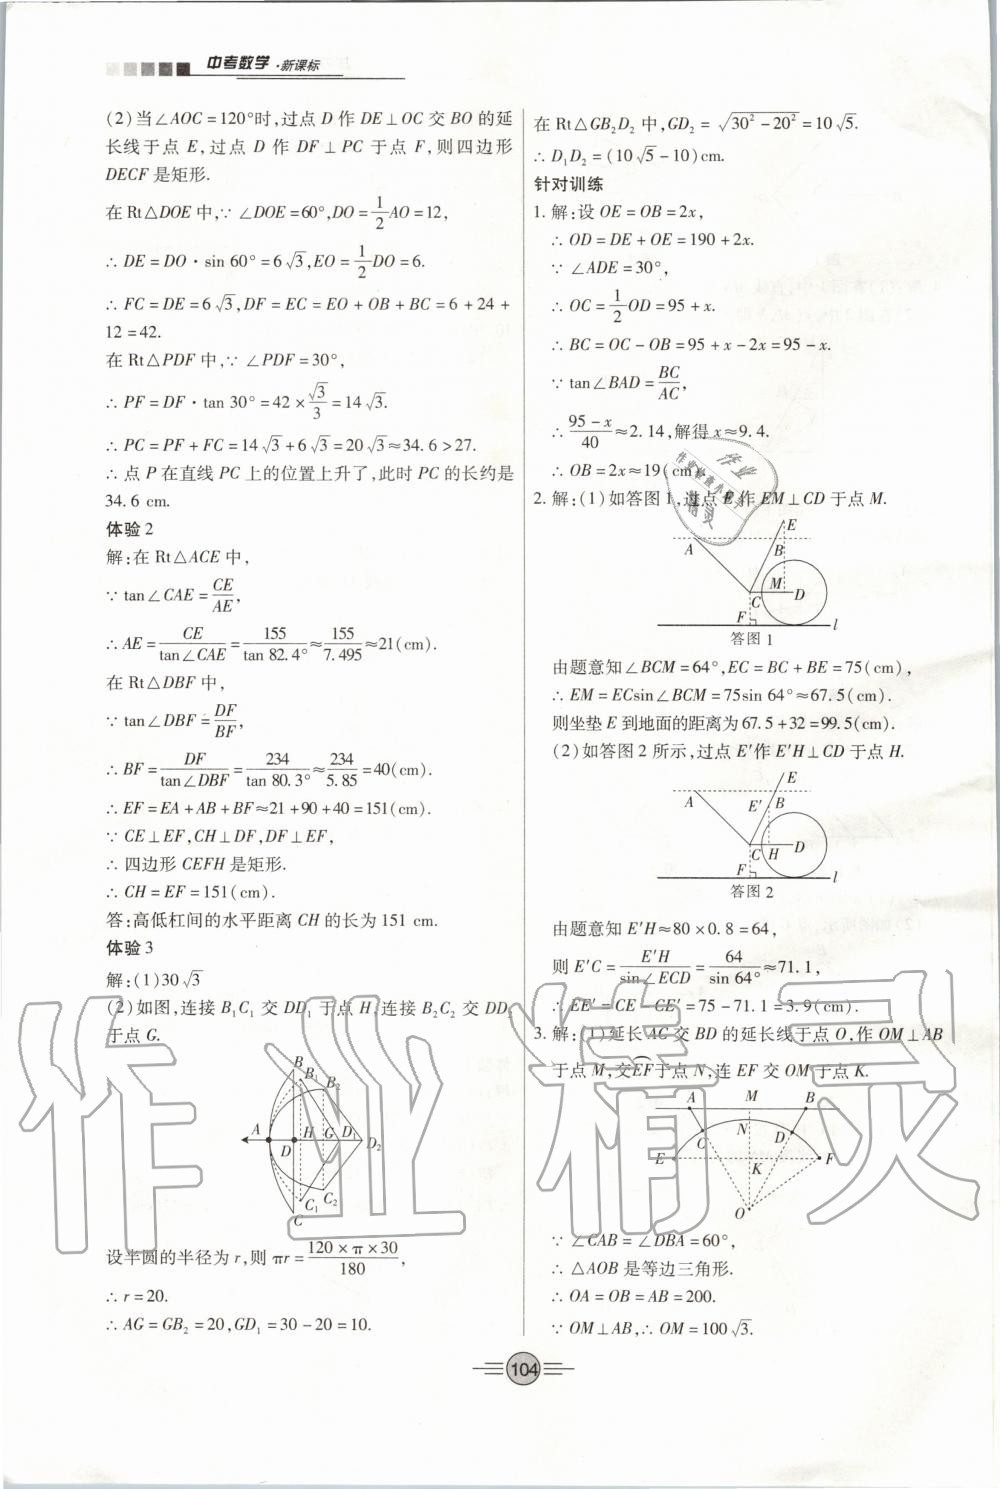 中考数学·新课标
(2)当∠AOC=120°时,过点 D 作 DE⊥OC 交 BO 的延
长线于点 E,过点 D 作 DF⊥PC 于点 F,则四边形
DECF 是矩形.
在 Rt△DOE 中,∵∠DOE=60°,DO=1/2AO=12,
∴DE=DO·sin 60°=6√3,EO=1/2DO=6.
∴FC=DE=6√3,DF=EC=EO+OB+BC=6+24+
12=42.
在 Rt△PDF 中,∵∠PDF=30°,
∴PF=DF·tan 30°=42×√3/3=14√3.
∴PC=PF+FC=14√3+6√3=20√3≈34.6>27.
∴点 P 在直线 PC 上的位置上升了,此时 PC 的长约是
34.6 cm.
体验2
解:在 Rt△ACE 中,
∵tan∠CAE=CE/AE,
∴AE=CE/tan∠CAE=155/tan 82.4°≈155/7.495≈21(cm).
在 Rt△DBF 中,
∵tan∠DBF=DF/BF,
∴BF=DF/tan∠DBF=234/tan 80.3°≈234/5.85=40(cm).
∴EF=EA+AB+BF≈21+90+40=151(cm).
∵CE⊥EF,CH⊥DF,DF⊥EF,
∴四边形 CEFH 是矩形.
∴CH=EF=151(cm).
答:高低杠间的水平距离 CH 的长为 151 cm.
体验3
解:(1)30√3
(2)如图,连接 B₁C₁ 交 DD₁ 于点 H,连接 B₂C₂ 交 DD₂
于点 G.
B
B₁
B₂
A
D
H
G
D₁
D₂
C₁
C₂
C
设半圆的半径为 r,则 πr=120×π×30/180,
∴r=20.
∴AG=GB₂=20,GD₁=30-20=10.
在 Rt△GB₂D₂ 中,GD₂=√(30²-20²)=10√5.
∴D₁D₂=(10√5-10)cm.
针对训练
1.解:设 OE=OB=2x,
∴OD=DE+OE=190+2x.
∵∠ADE=30°,
∴OC=1/2OD=95+x.
∴BC=OC-OB=95+x-2x=95-x.
∵tan∠BAD=BC/AC,
∴95-x/40≈2.14,解得 x≈9.4.
∴OB=2x≈19(cm
2.解:(1)如答图1,过点 E 作 EM⊥CD 于点 M.
E
A
B
M
C
D
F
l
答图1
由题意知∠BCM=64°,EC=BC+BE=75(cm),
∴EM=ECsin∠BCM=75sin 64°≈67.5(cm).
则坐垫 E 到地面的距离为 67.5+32=99.5(cm).
(2)如答图 2 所示,过点 E′作 E′H⊥CD 于点 H.
E
A
E′
B
C
H
D
F
l
答图2
由题意知 E′H≈80×0.8=64,
则 E′C=E′H/sin∠ECD=64/sin 64°≈71.1,
∴EE′=CE-CE′=75-71.1=3.9(cm).
3.解:(1)延长 AC 交 BD 的延长线于点 O,作 OM⊥AB
于点 M,交EF于点 N,连 EF 交 OM 于点 K.
A
M
B
C
N
D
E
K
F
O
∵∠CAB=∠DBA=60°,
∴△AOB 是等边三角形.
∴OA=OB=AB=200.
∵OM⊥AB,∴OM=100√3.
104
作业精灵